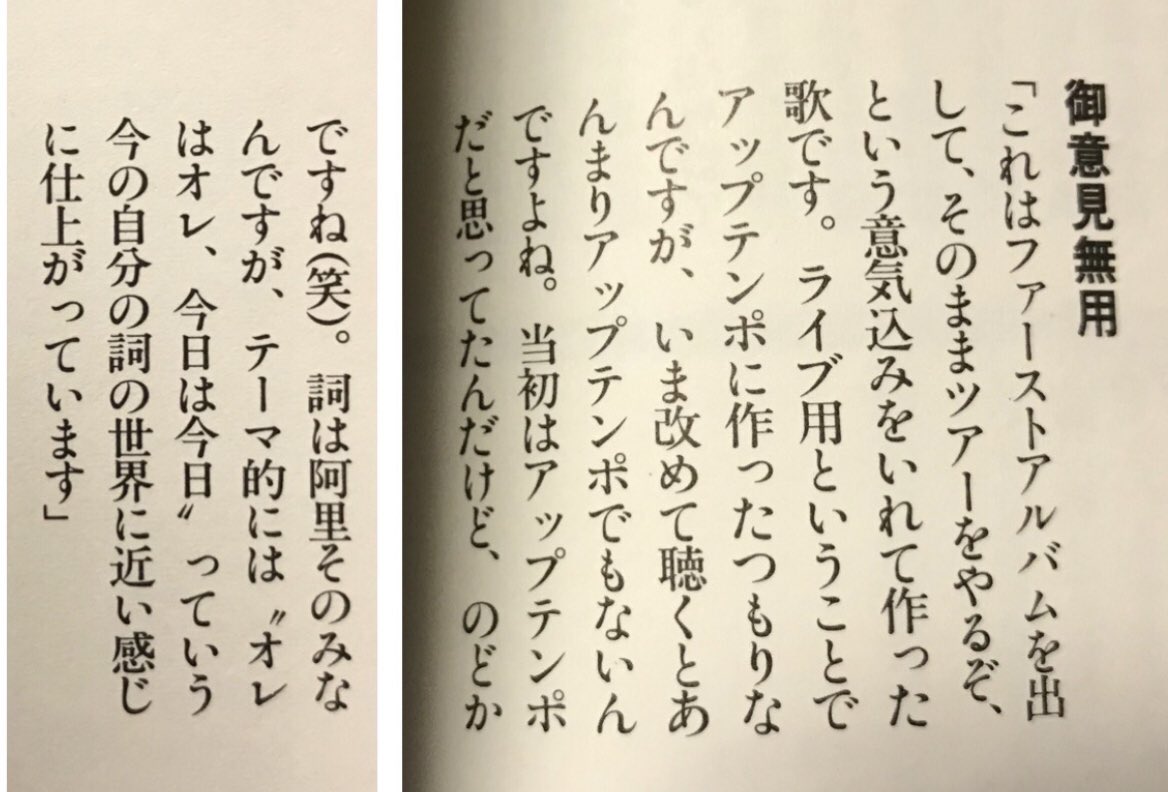 御意見無用
「これはファーストアルバムを出
して、そのままツアーをやるぞ、
という意気込みをいれて作った
歌です。ライブ用ということで
アップテンポに作ったつもりな
んですが、いま改めて聴くとあ
んまりアップテンポでもないん
ですよね。当初はアップテンポ
だと思ってたんだけど、のどか
ですね(笑)。詞は阿里そのみな
んですが、テーマ的には〝オレ
はオレ、今日は今日〟っていう
今の自分の詞の世界に近い感じ
に仕上がっています」